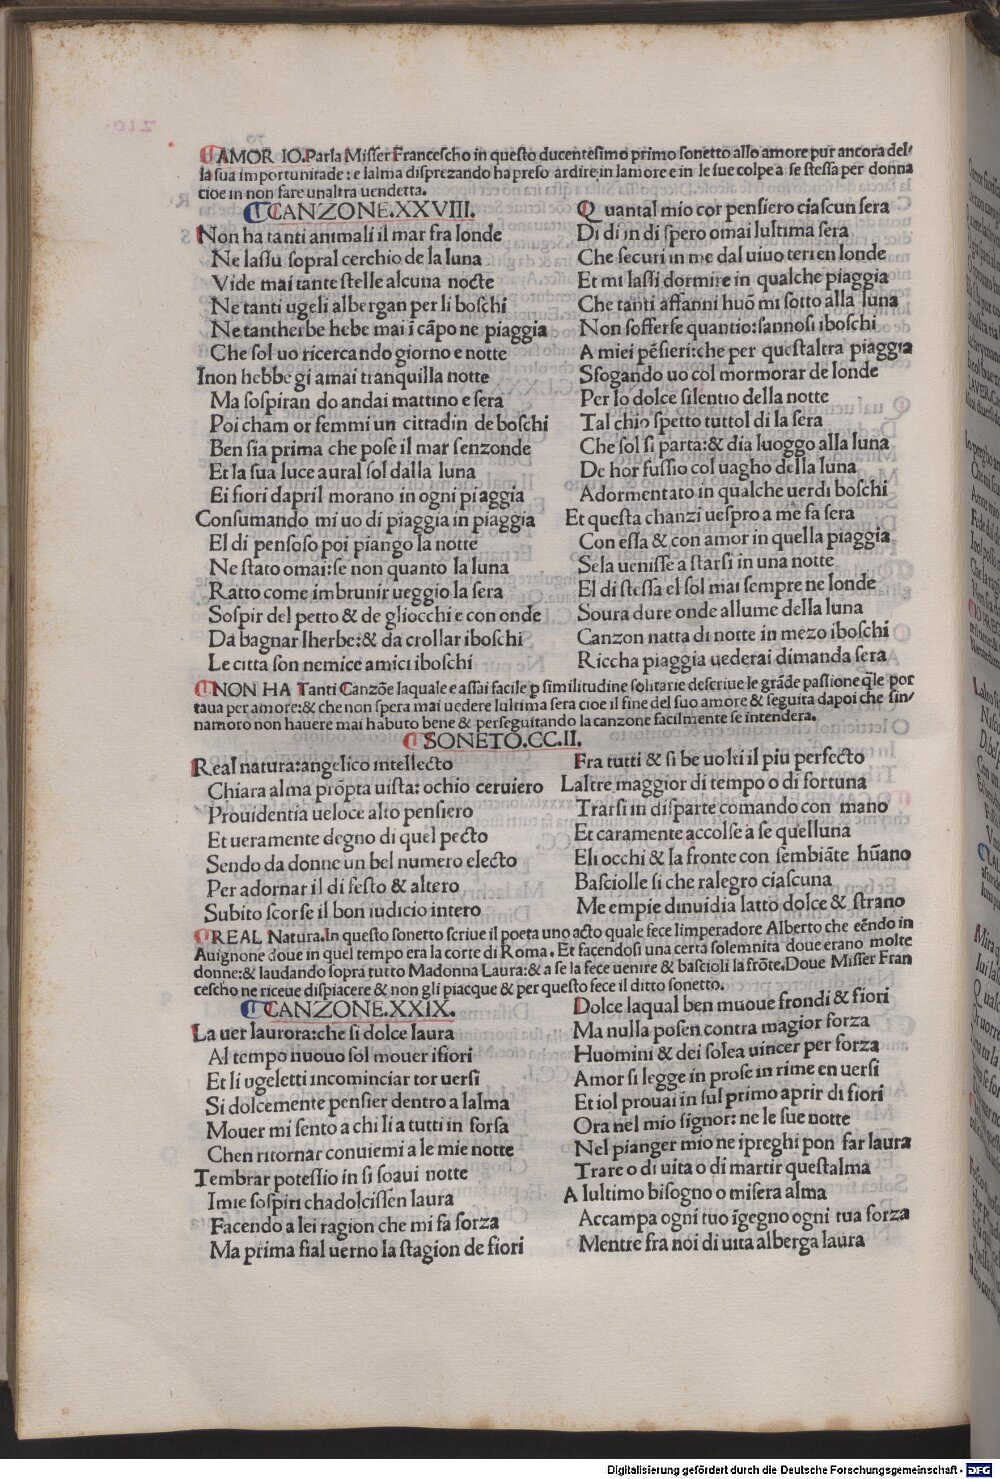 AMOR IO.Parla Misser Francescho in questo ducentesimo primo sonetto allo amore pur ancora del/
la sua importunitade: e lalma disprezando ha preso ardire in lamore e in le sue colpe a se stessa per donna
cioe in non fare unaltra uendetta.
CANZONE.XXVIII.
Non ha tanti animali il mar fra londe
Ne lassu sopral cerchio de la luna
Vide mai tante stelle alcuna nocte
Ne tanti ugeli albergan per li boschi
Ne tantherbe hebe mai ī cāpo ne piaggia
Che sol uo ricercando giorno e notte
Inon hebbe gi amai tranquilla notte
Ma sospiran do andai mattino e sera
Poi cham or femmi un cittadin de boschi
Ben sia prima che pose il mar senzonde
Et la sua luce aural sol dalla luna
Ei fiori dapril morano in ogni piaggia
Consumando mi uo di piaggia in piaggia
El di pensoso poi piango la notte
Ne stato omai:se non quanto la luna
Ratto come imbrunir ueggio la sera
Sospir del petto & de gliocchi e con onde
Da bagnar lherbe:& da crollar iboschi
Le citta son nemice amici iboschi
Q uantal mio cor pensiero ciascun sera
Di di in di spero omai lultima sera
Che securi in me dal uiuo teri en londe
Et mi lassi dormire in qualche piaggia
Che tanti affanni huō mi sotto alla luna
Non sofferse quantio:sannosi iboschi
A miei pēsieri:che per questaltra piaggia
Sfogando uo col mormorar de londe
Per lo dolce silentio della notte
Tal chio spetto tuttol di la sera
Che sol si parta:& dia luoggo alla luna
De hor fussio col uagho della luna
Adormentato in qualche uerdi boschi
Et questa chanzi uespro a me fa sera
Con essa & con amor in quella piaggia
Sela uenisse a starsi in una notte
El di stessa el sol mai sempre ne londe
Soura dure onde allume della luna
Canzon natta di notte in mezo iboschi
Riccha piaggia uederai dimanda sera
NON HA Tanti Canzōe laquale e assai facile p similitudine solitarie descriue le grāde passione q̄le por
taua per amore:& che non spera mai uedere lultima sera cioe il fine del suo amore & seguita dapoi che sin/
namoro non hauere mai habuto bene & perseguitando la canzone facilmente se intendera.
SONETO.CC.II.
Real natura:angelico intellecto
Chiara alma prōpta uista: ochio ceruiero
Prouidentia ueloce alto pensiero
Et ueramente degno di quel pecto
Sendo da donne un bel numero electo
Per adornar il di festo & altero
Subito scorse il bon iudicio intero
Fra tutti & si be uolti il piu perfecto
Laltre maggior di tempo o di fortuna
Trarsi in disparte comando con mano
Et caramente accolse a se quelluna
Eli occhi & la fronte con sembiāte hūano
Basciolle si che ralegro ciascuna
Me empie dinuidia latto dolce & strano
REAL Natura.In questo sonetto scriue il poeta uno acto quale fece limperadore Alberto che eēndo in
Auignone doue in quel tempo era la corte di Roma. Et facendosi una certa solemnita doue erano molte
donne:& laudando sopra tutto Madonna Laura:& a se la fece uenire & bascioli la frōte.Doue Misser Fran
cescho ne riceue dispiacere & non gli piacque & per questo fece il ditto sonetto.
CANZONE.XXIX.
La uer laurora:che si dolce laura
Al tempo nuouo sol mouer ifiori
Et li ugeletti incominciar tor uersi
Si dolcemente pensier dentro a lalma
Mouer mi sento a chi li a tutti in forsa
Chen ritornar conuiemi a le mie notte
Tembrar potessio in si soaui notte
Imie sospiri chadolcissen laura
Facendo a lei ragion che mi fa forza
Ma prima fial uerno la stagion de fiori
Dolce laqual ben muoue frondi & fiori
Ma nulla posen contra magior forza
Huomini & dei solea uincer per forza
Amor si legge in prose in rime en uersi
Et iol prouai in sul primo aprir di fiori
Ora nel mio signor: ne le sue notte
Nel pianger mio ne ipreghi pon far laura
Trare o di uita o di martir questalma
A lultimo bisogno o misera alma
Accampa ogni tuo īgegno ogni tua forza
Mentre fra noi di uita alberga laura
Digitalisierung gefördert durch die Deutsche Forschungsgemeinschaft - DFG